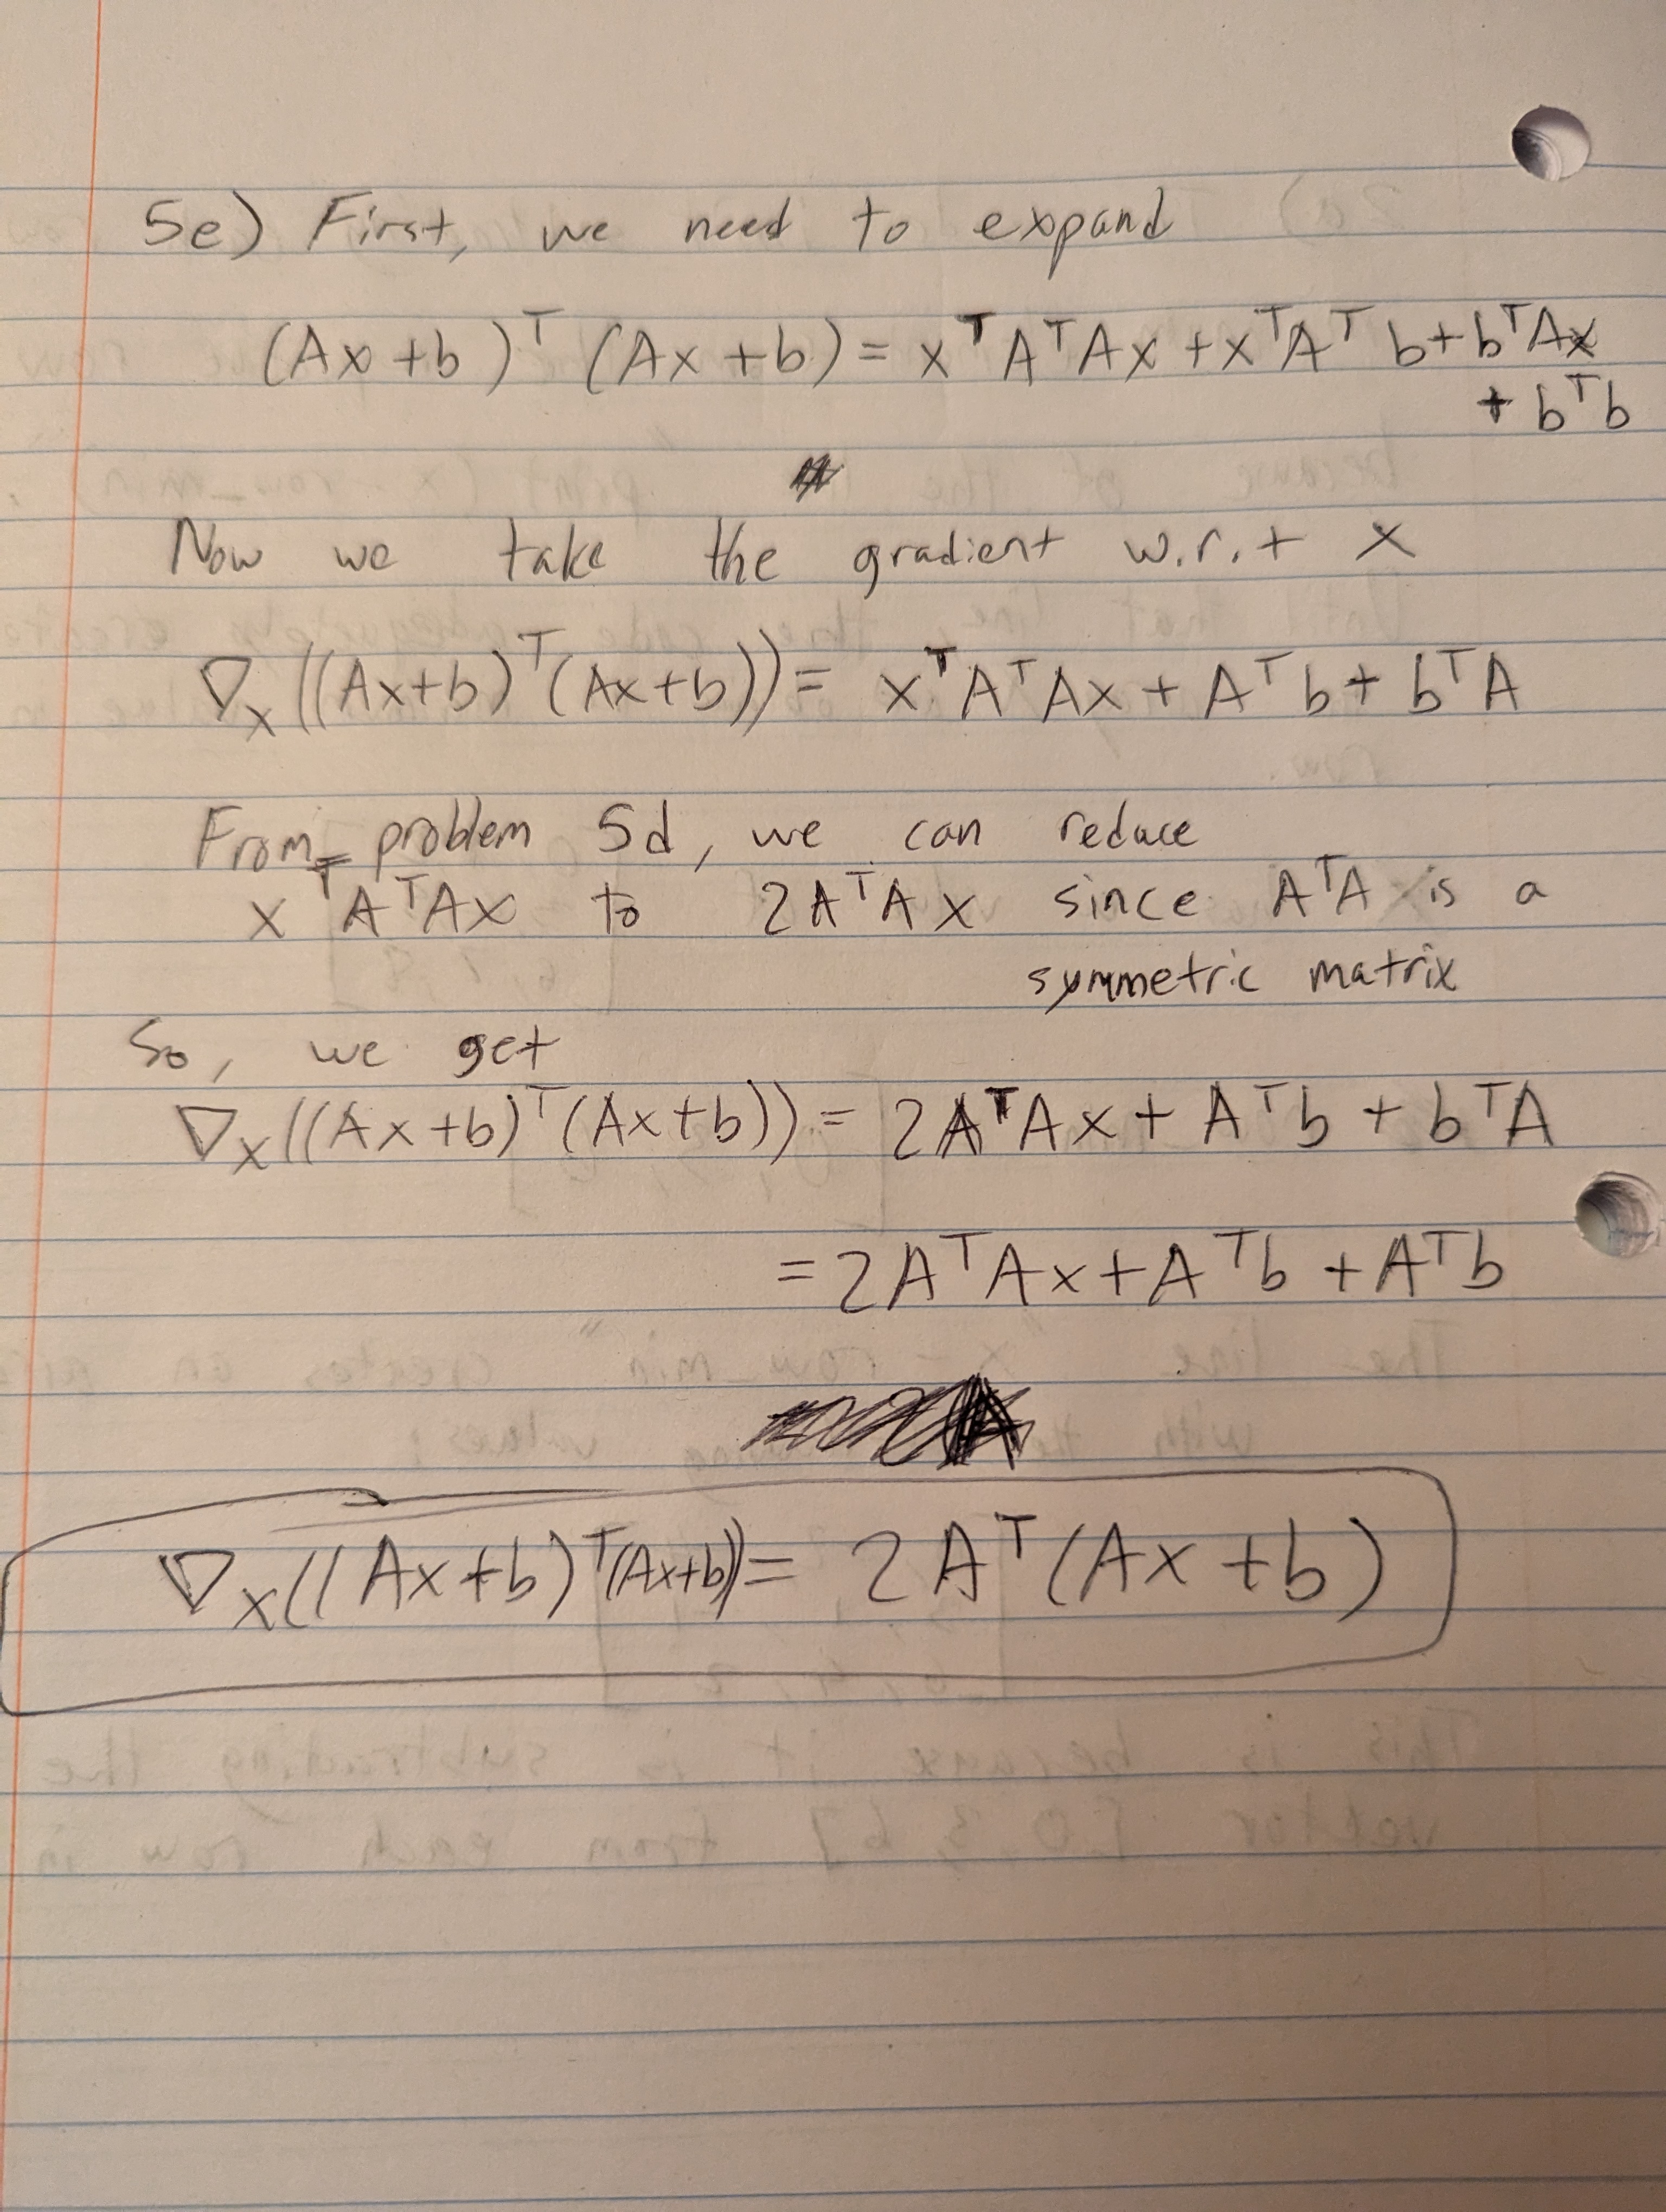 5e) First, we need to expand
(Ax+b)ᵀ(Ax+b) = xᵀAᵀAx + xᵀAᵀb + bᵀAx
+ bᵀb
Now we take the gradient w.r.t x
∇ₓ((Ax+b)ᵀ(Ax+b)) = xᵀAᵀAx + Aᵀb + bᵀA
From problem 5d, we can reduce
xᵀAᵀAx to 2AᵀAx since AᵀA is a
symmetric matrix
So, we get
∇ₓ((Ax+b)ᵀ(Ax+b)) = 2AᵀAx + Aᵀb + bᵀA
= 2AᵀAx + Aᵀb + Aᵀb
∇ₓ((Ax+b)ᵀ(Ax+b)) = 2Aᵀ(Ax+b)